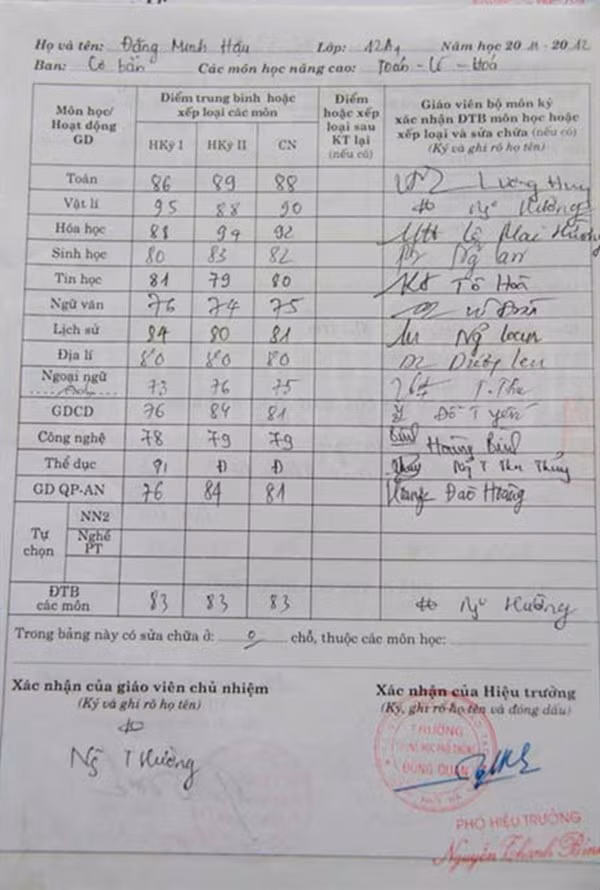 Họ và tên: Đặng Minh Hậu Lớp: 12A1 Năm học 20 11 - 20 12
Ban: Cơ bản Các môn học nâng cao: Toán - Lí - Hoá
Môn học/ Hoạt động GD Điểm trung bình hoặc xếp loại các môn Điểm hoặc xếp loại sau KT lại (nếu có) Giáo viên bộ môn ký xác nhận ĐTB môn học hoặc xếp loại và sửa chữa (nếu có) (Ký và ghi rõ họ tên)
HKỳ I HKỳ II CN
Toán 86 89 88 Lương Huy
Vật lí 95 88 90 Ng Hường
Hóa học 88 94 92 Lê Mai Hương
Sinh học 80 83 82 Ng an
Tin học 81 79 80 Tô Hoà
Ngữ văn 76 74 75
Lịch sử 84 80 81 Ng loan
Địa lí 80 80 80
Ngoại ngữ 73 76 75 T. Thu
GDCD 76 84 81 Đỗ T yến
Công nghệ 78 79 79 Hoàng Bình
Thể dục Đ Đ
GD QP-AN 76 84 81 Đào Hoàng
Tự chọn NN2
Nghề PT
ĐTB các môn 83 83 83 Ng Hường
Trong bảng này có sửa chữa ở: 0 chỗ, thuộc các môn học:
Xác nhận của giáo viên chủ nhiệm Xác nhận của Hiệu trưởng
(Ký và ghi rõ họ tên) (Ký, ghi rõ họ tên và đóng dấu)
TRƯỜNG
TRUNG HỌC PHỔ THÔNG
ĐỒNG QUAN
Ng T Hường
PHÓ HIỆU TRƯỞNG
Nguyễn Thanh Bình